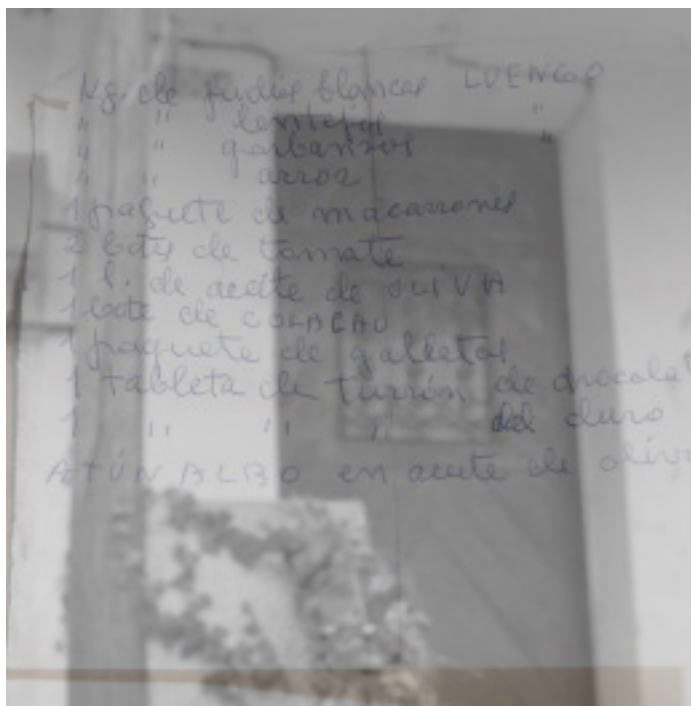 1 Kg. de judias blancas LUENGOS
" " lentejas "
" " garbanzos "
" " arroz
1 paquete de macarrones
2 botes de tomate
1 l. de aceite de OLIVA
1 bote de COLACAO
1 paquete de galletas
1 tableta de turrón de chocolat
1 " " " del duro
ATÚN ALBO en aceite de oliva